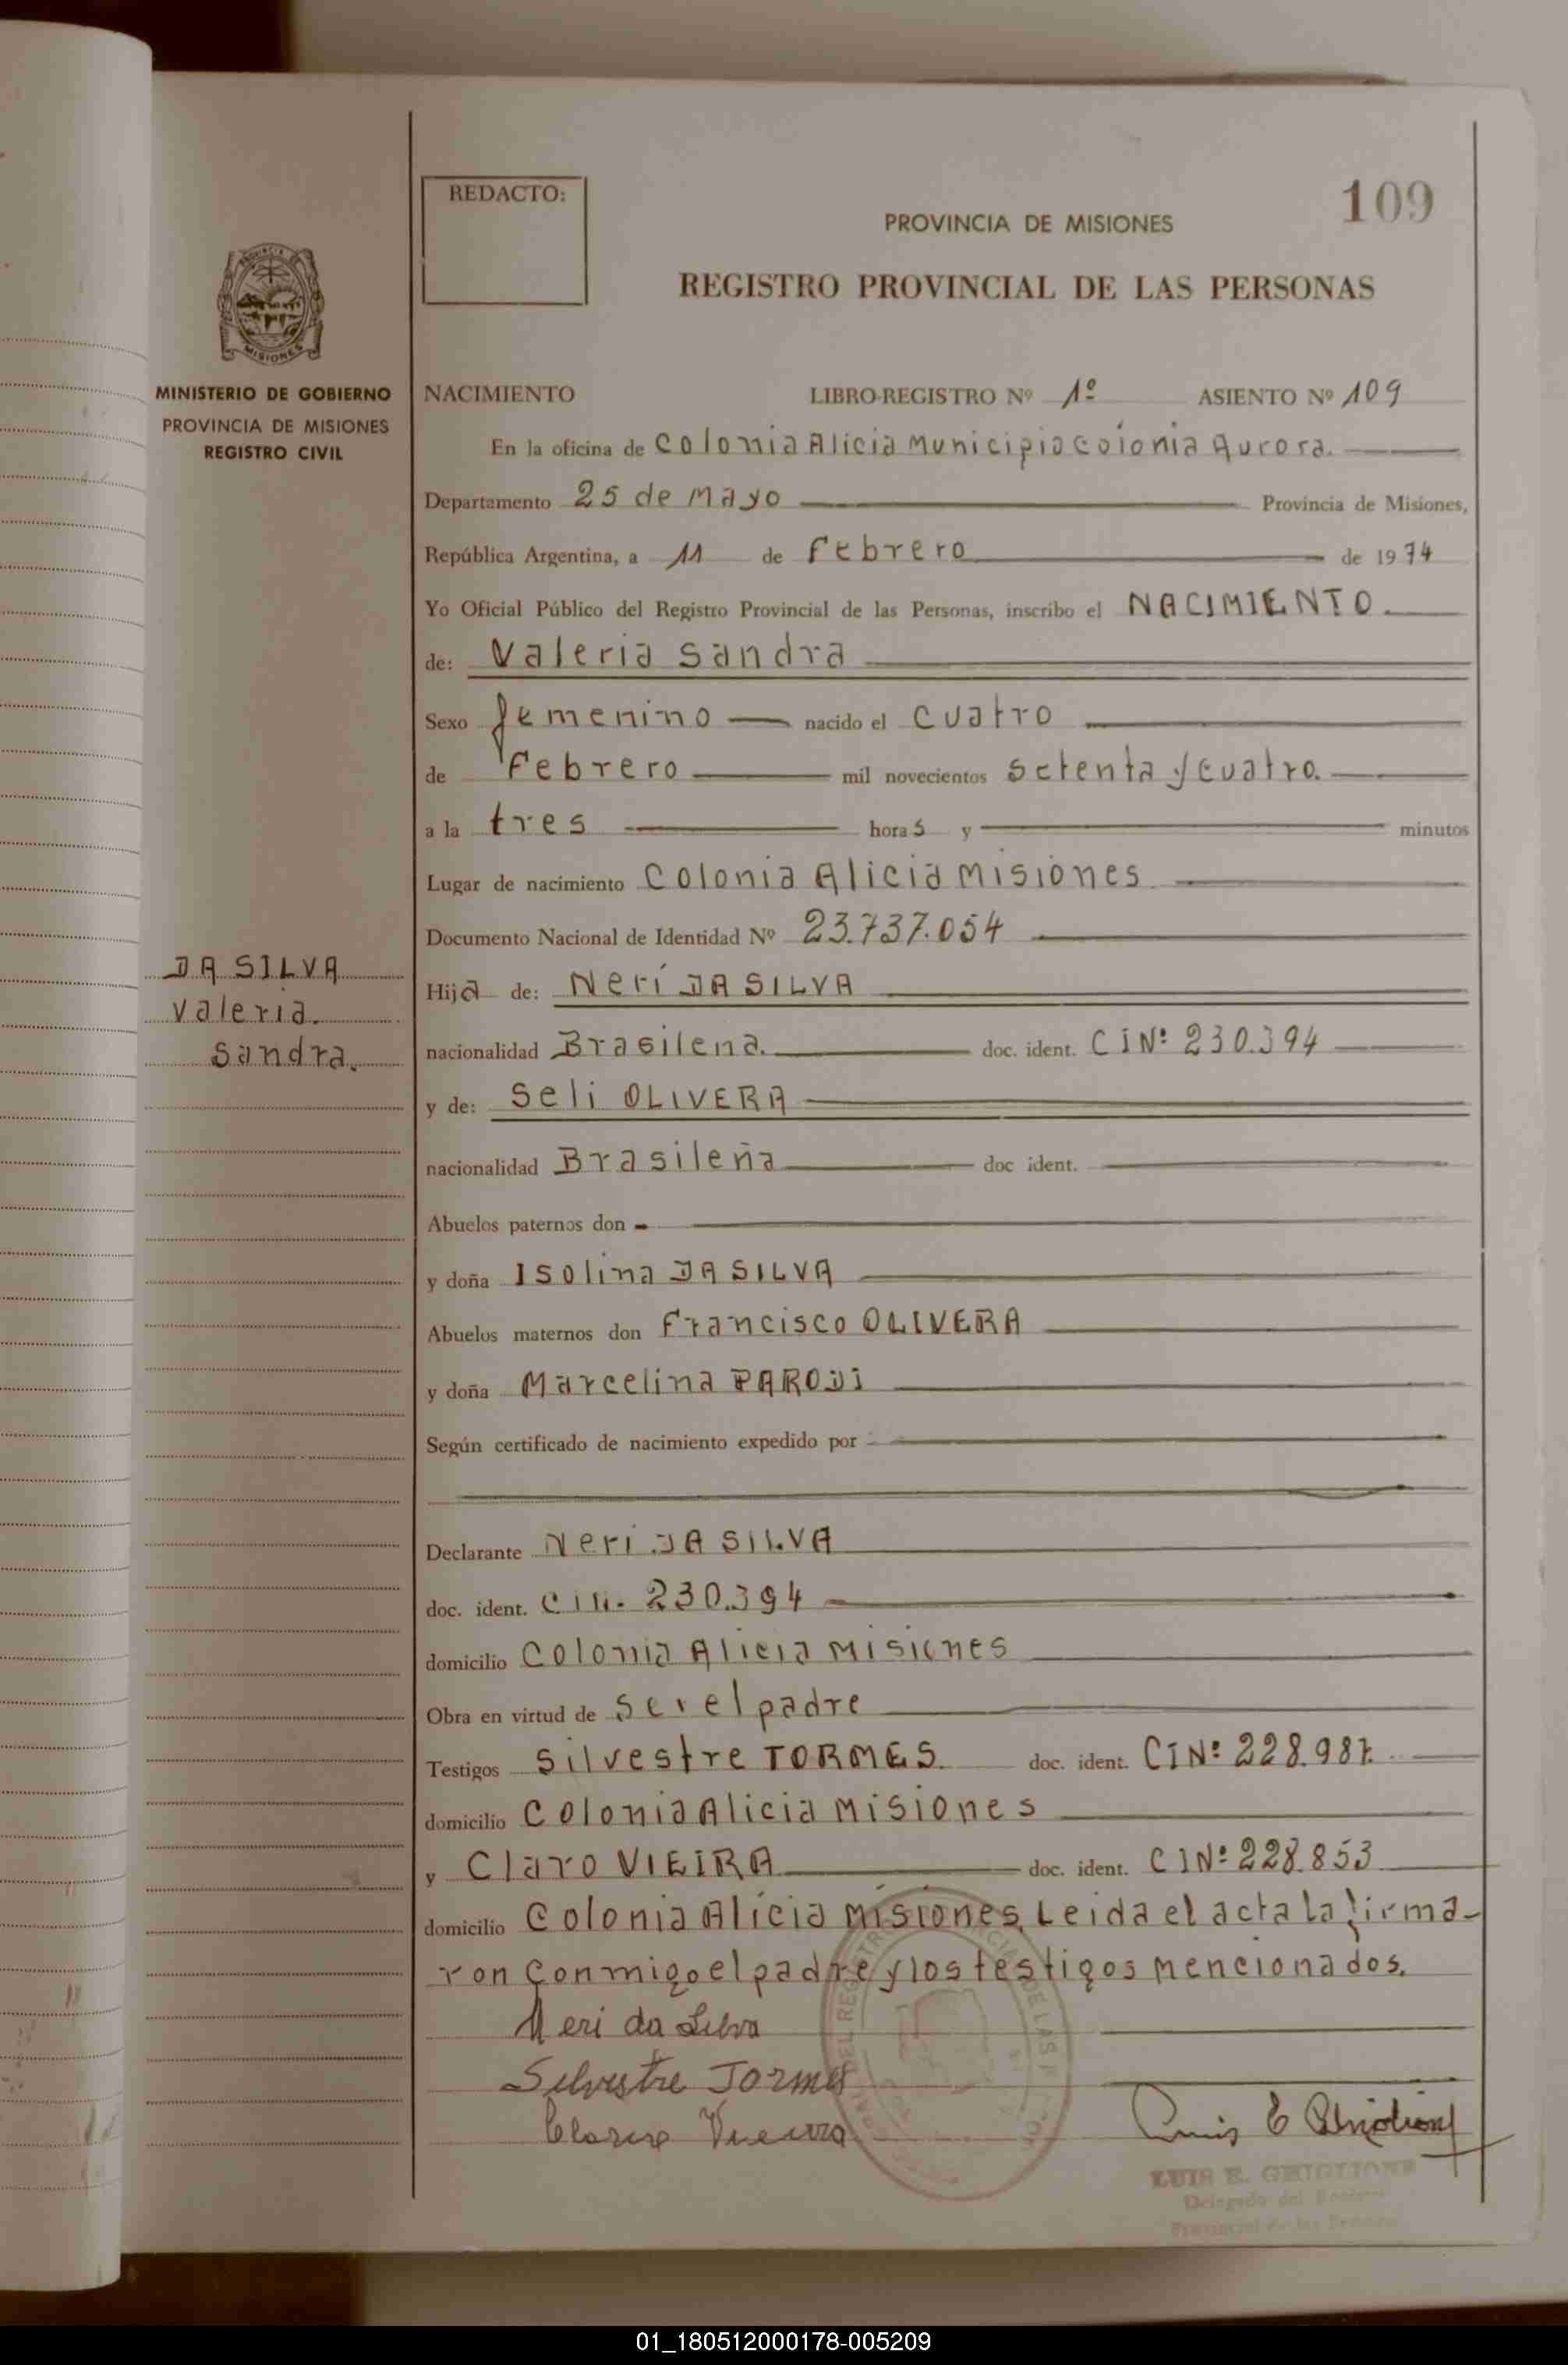 109
REDACTO:
PROVINCIA DE MISIONES
REGISTRO PROVINCIAL DE LAS PERSONAS
PROVINCIA
MISIONES
MINISTERIO DE GOBIERNO
PROVINCIA DE MISIONES
REGISTRO CIVIL
NACIMIENTO LIBRO-REGISTRO Nº 1º ASIENTO Nº 109
En la oficina de Colonia Alicia Municipio Colonia Aurora.
Departamento 25 de Mayo Provincia de Misiones,
República Argentina, a 11 de Febrero de 1974
Yo Oficial Público del Registro Provincial de las Personas, inscribo el NACIMIENTO.
de: Valeria Sandra
Sexo femenino nacido el cuatro
de Febrero mil novecientos setenta y cuatro.
a la tres horas y minutos
Lugar de nacimiento Colonia Alicia Misiones
Documento Nacional de Identidad Nº 23.737.054
DA SILVA
Valeria.
Sandra.
Hija de: Neri DA SILVA
nacionalidad Brasilena. doc. ident. CINº 230.394
y de: Seli OLIVERA
nacionalidad Brasileña doc ident.
Abuelos paternos don
y doña Isolina DA SILVA
Abuelos maternos don Francisco OLIVERA
y doña Marcelina PARODI
Según certificado de nacimiento expedido por
Declarante Neri DA SILVA
doc. ident. CIN. 230.394
domicilio Colonia Alicia Misiones
Obra en virtud de ser el padre
Testigos Silvestre TORMES. doc. ident. CINº 228.987.
domicilio Colonia Alicia Misiones
y Claro VIEIRA doc. ident. CINº 228.853
domicilio Colonia Alicia Misiones Leida el acta la firma-
ron conmigo el padre y los testigos mencionados.
Neri da Silva
Silvestre Tormes
LUIS E. GHIGLIONE
Delegado del
Provincial de las
01_180512000178-005209